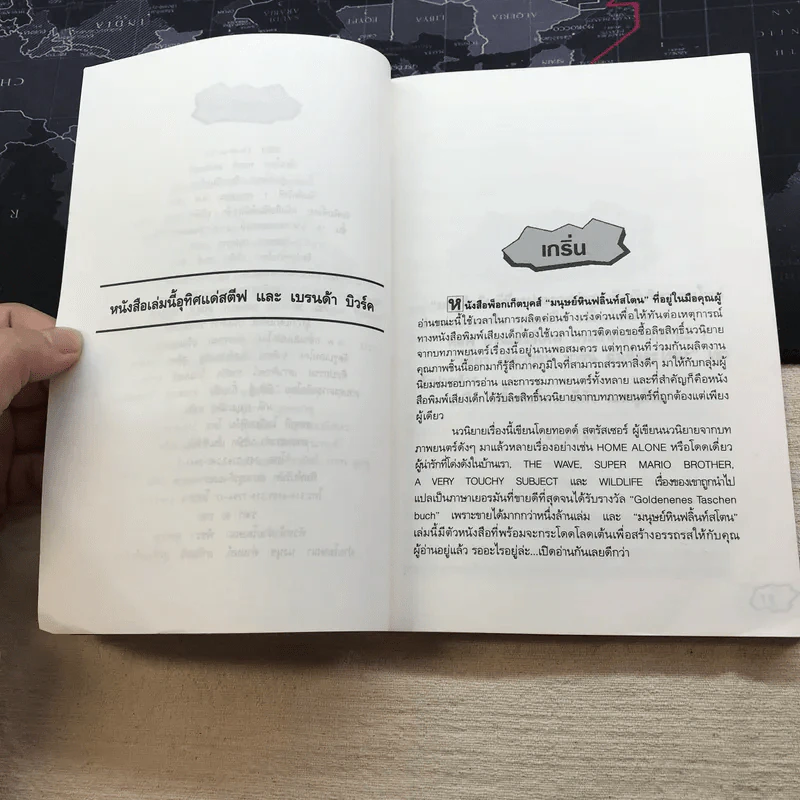 หนังสือเล่มนี้อุทิศแด่สตีฟ และ เบรนด้า บิวร์ค
เกริ่น
หนังสือพ็อกเก็ตบุคส์ "มนุษย์หินฟลิ้นท์สโตน" ที่อยู่ในมือคุณผู้
อ่านขณะนี้ใช้เวลาในการผลิตค่อนข้างเร่งด่วนเพื่อให้ทันต่อเหตุการณ์
ทางหนังสือพิมพ์เสียงเด็กต้องใช้เวลาในการติดต่อขอซื้อลิขสิทธิ์นวนิยาย
จากบทภาพยนตร์เรื่องนี้อยู่นานพอสมควร แต่ทุกคนที่ร่วมกันผลิตงาน
คุณภาพชิ้นนี้ออกมาก็รู้สึกภาคภูมิใจที่สามารถสรรหาสิ่งดีๆ มาให้กับกลุ่มผู้
นิยมชมชอบการอ่าน และการชมภาพยนตร์ทั้งหลาย และที่สำคัญก็คือหนัง
สือพิมพ์เสียงเด็กได้รับลิขสิทธิ์นวนิยายจากบทภาพยนตร์ที่ถูกต้องแต่เพียง
ผู้เดียว
นวนิยายเรื่องนี้เขียนโดยทอดด์ สตรัสเซอร์ ผู้เขียนนวนิยายจากบท
ภาพยนตร์ดังๆ มาแล้วหลายเรื่องอย่างเช่น HOME ALONE หรือโดดเดี่ยว
ผู้น่ารักที่โด่งดังในบ้านเรา, THE WAVE, SUPER MARIO BROTHER,
A VERY TOUCHY SUBJECT และ WILDLIFE เรื่องของเขาถูกนำไป
แปลเป็นภาษาเยอรมันที่ขายดีที่สุดจนได้รับรางวัล "Goldenenes Taschen
buch" เพราะขายได้มากกว่าหนึ่งล้านเล่ม และ "มนุษย์หินฟลิ้นท์สโตน"
เล่มนี้มีตัวหนังสือที่พร้อมจะกระโดดโลดเต้นเพื่อสร้างอรรถรสให้กับคุณ
ผู้อ่านอยู่แล้ว รออะไรอยู่ล่ะ...เปิดอ่านกันเลยดีกว่า